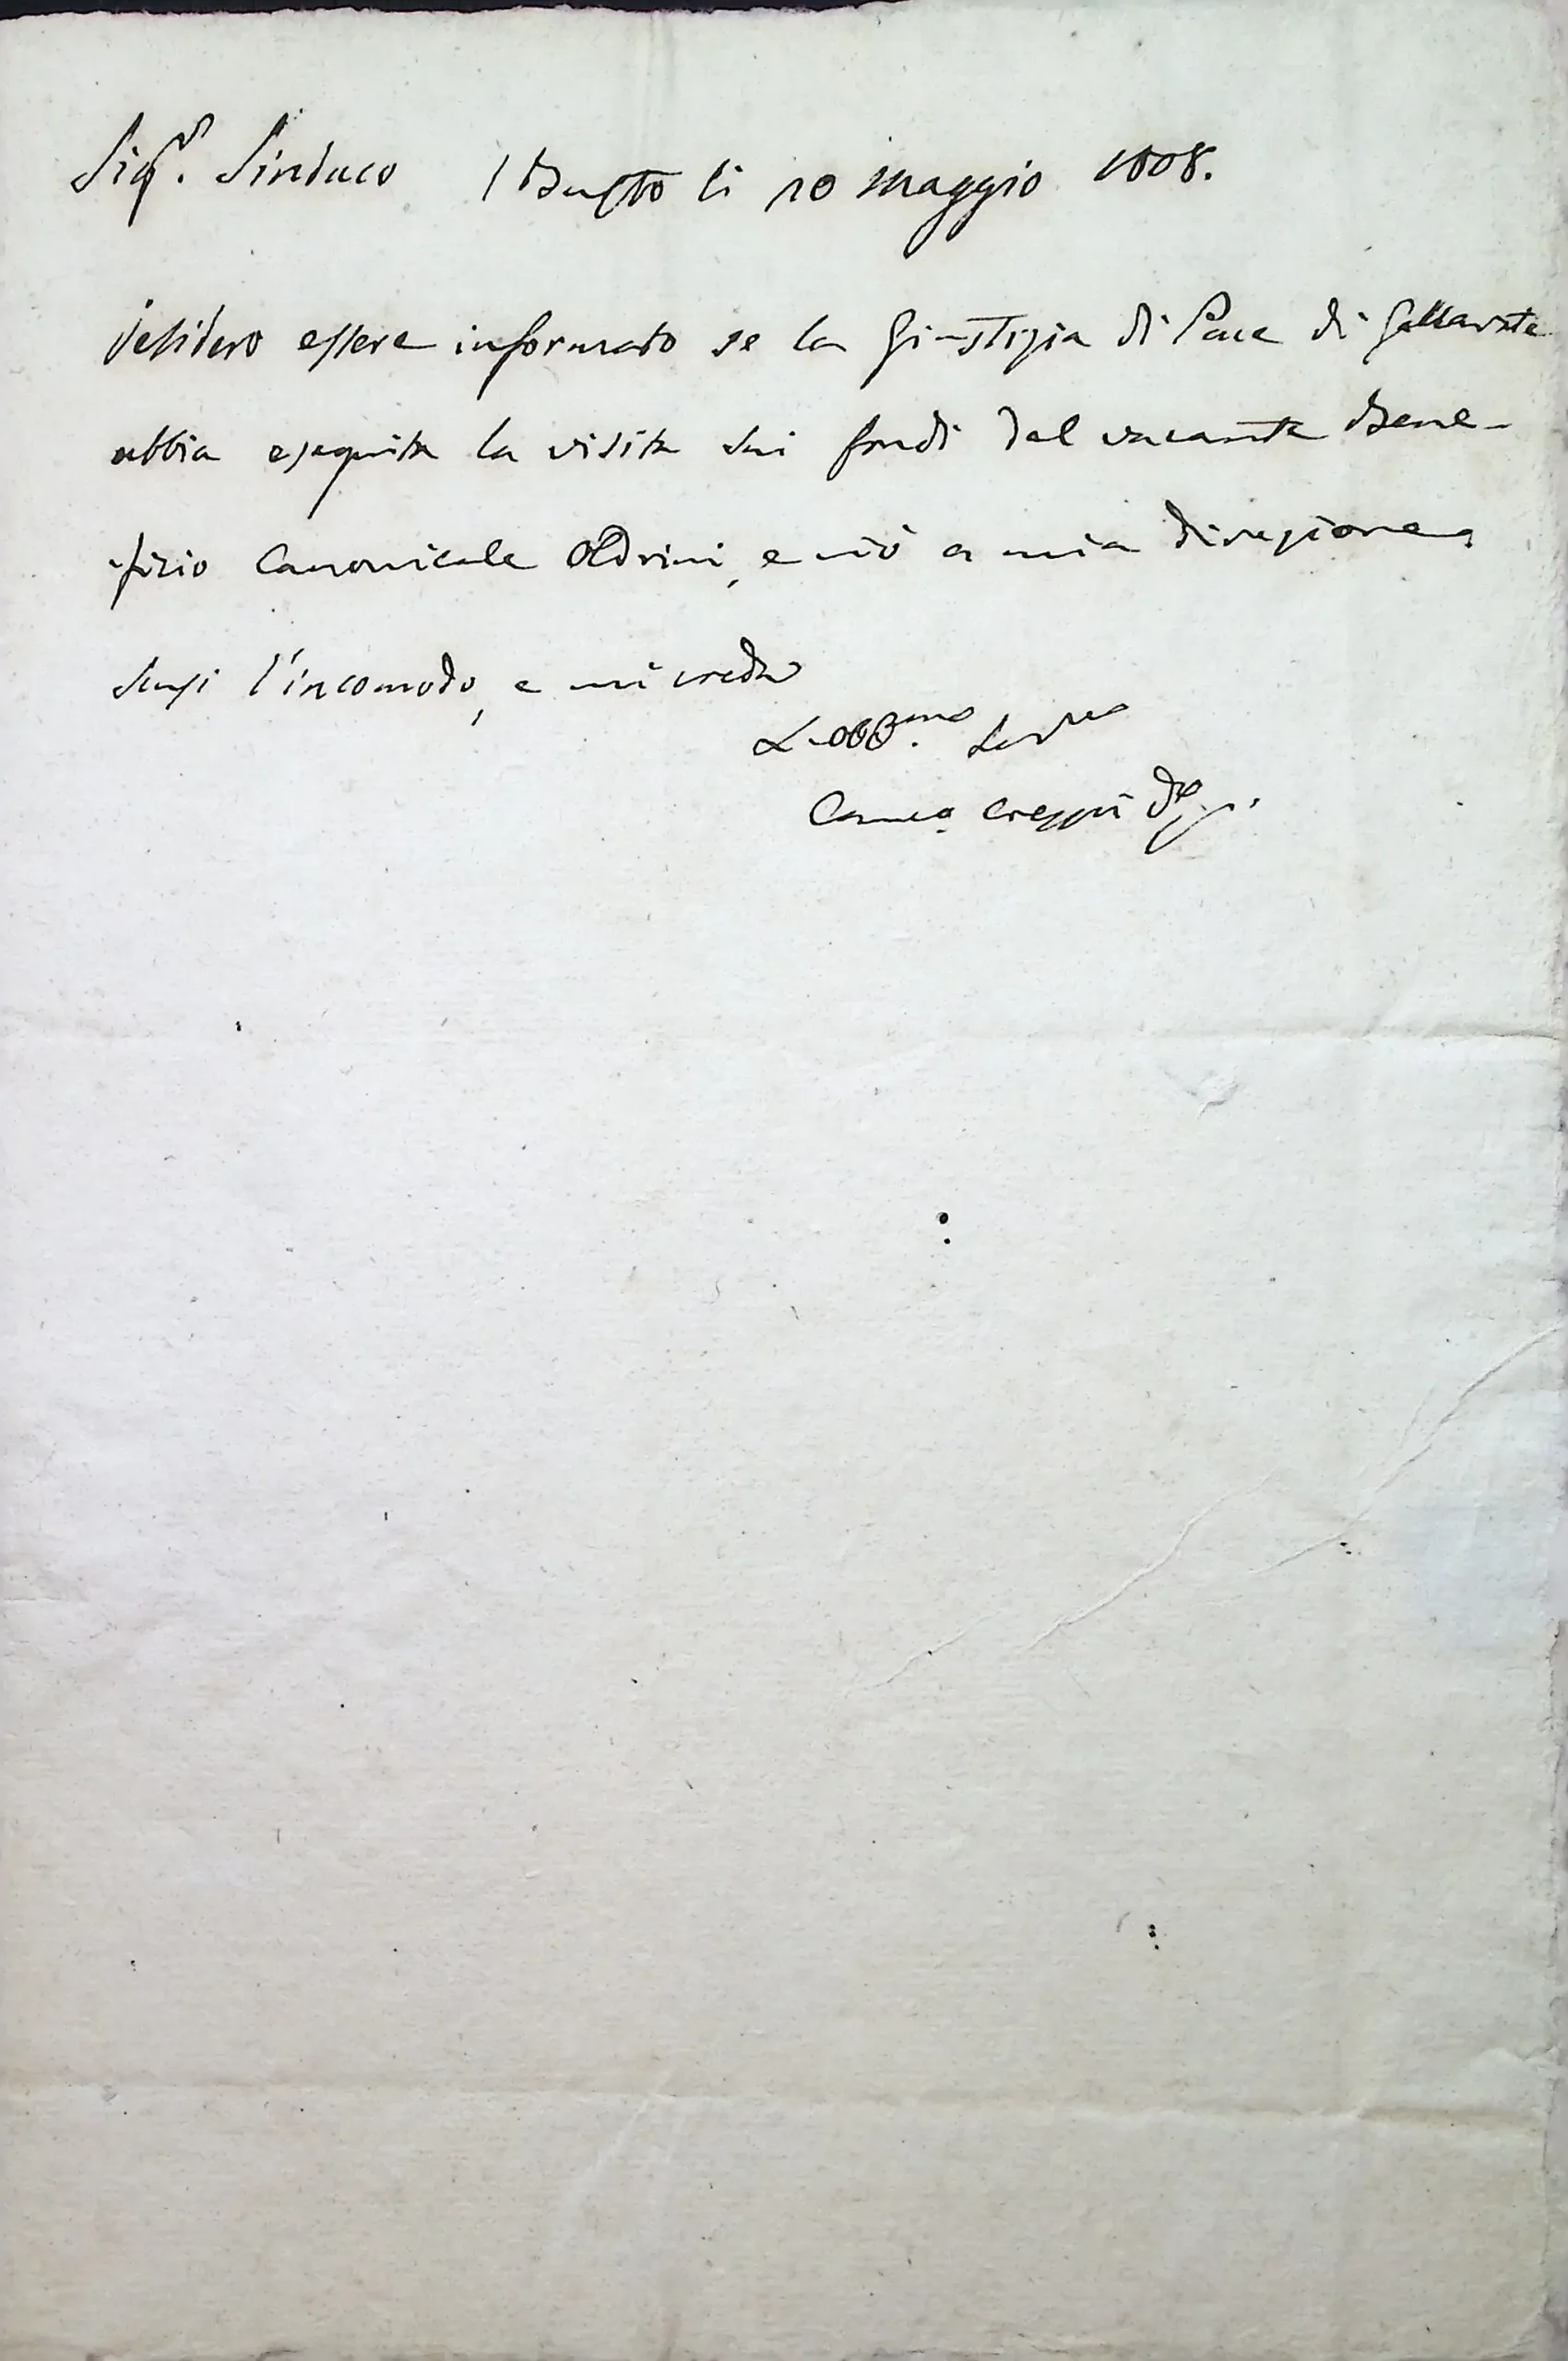 Sigr. Sindaco / Busto li 10 maggio 1808.
Desidero essere informato se la Giustizia di Pace di Gallarate
abbia eseguita la visita sui fondi del vacante Bene-
fizio Canonicale Oldrini, e ciò a mia direzione.
Scusi l'incomodo, e mi creda
L'obbmo. Servre
Canco. Crespi